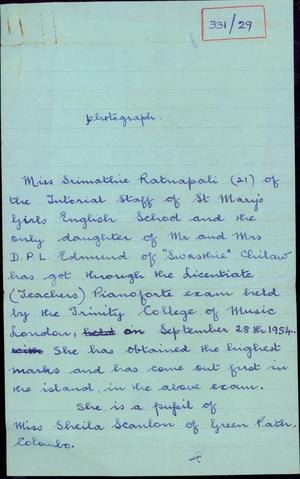 331/29
photograph.
Miss Srimathie Ratnapali (21) of
the Tutorial Staff of St Mary's
Girls English School and the
only daughter of Mr and Mrs
D.P.L. Edmund of "Swasthie" Chilaw
has got through the Licentiate
(Teachers) Pianoforte exam held
by the Trinity College of Music
London, held on September 28th 1954.
with She has obtained the highest
marks and has come out first in
the island, in the above exam.
She is a pupil of
Miss Sheila Scanlon of Green Path,
Colombo.